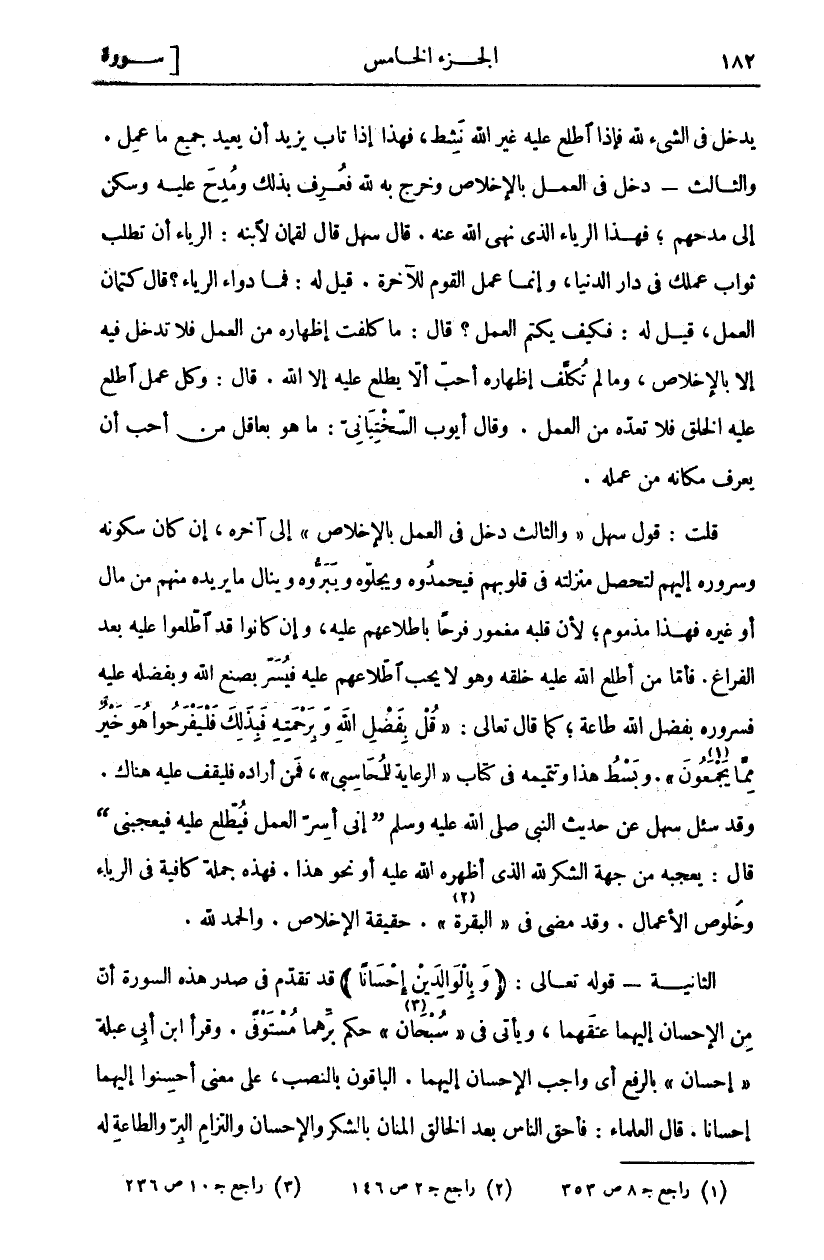 ١٨٢ الجـــزء الخـامس [ ســـورة
يدخل فى الشىء لله فإذا ٱطلع عليه غير الله نَشِط، فهذا إذا تاب يزيد أن يعيد جميع ما عمِل .
والثالث — دخل فى العمل بالإخلاص وخرج به لله فعُرِف بذلك ومُدِحَ عليه وسكن
إلى مدحهم ؛ فهـذا الرياء الذى نهى الله عنه . قال سهل قال لقمان لٱبنه : الرياء أن تطلب
ثواب عملك فى دار الدنيا، وإنمـا عمل القوم للآخرة . قيل له : فمـا دواء الرياء ؟ قال كتمان
العمل ، قيـل له : فكيف يكتم العمل ؟ قال : ما كلفت إظهاره من العمل فلا تدخل فيه
إلا بالإخلاص ، وما لم تُكلَّف إظهاره أحبّ ألّا يطلع عليه إلا الله . قال : وكل عمل ٱطلع
عليه الخلق فلا تعدّه من العمل . وقال أيوب السِّخْتِيَانىّ : ما هو بعاقل من أحب أن
يعرف مكانه من عمله .
قلت : قول سهل « والثالث دخل فى العمل بالإخلاص » إلى آخره ، إن كان سكونه
وسروره إليهم لتحصل منزلته فى قلوبهم فيحمدُوه ويجلّوه ويَبَرُّوه وينال ما يريده منهم من مال
أو غيره فهـذا مذموم؛ لأن قلبه مغمور فرحًا باطلاعهم عليه، وإن كانوا قد ٱطّلعوا عليه بعد
الفراغ. فأمّا من أطلع الله عليه خلقه وهو لا يحب ٱطّلاعهم عليه فيُسَرّ بصنع الله وبفضله عليه
فسروره بفضل الله طاعة ؛ كما قال تعالى : « قُلْ بِفَضْلِ اللهِ وَبِرَحْمَتِهِ فَبِذَلِكَ فَلْيَفْرَحُوا هُوَ خَيْرٌ
مِمَّا يَجْمَعُونَ (١)» . وبَسْطُ هذا وتتميمه فى كتاب « الرعاية للمُحَاسِبى» ، فمن أراده فليقف عليه هناك .
وقد سئل سهل عن حديث النبى صلى الله عليه وسلم ” إنى أسِرّ العمل فيُطّلع عليه فيعجبنى “
قال : يعجبه من جهة الشكر لله الذى أظهره الله عليه أو نحو هذا . فهذه جملة كافية فى الرياء
وخُلوص الأعمال . وقد مضى فى « البقرة (٢)» . حقيقة الإخلاص . والحمد لله .
الثانيـــة — قوله تعـالى : ﴿ وَبِالْوَالِدَيْنِ إِحْسَانًا ﴾ قد تقدّم فى صدر هذه السورة أنّ
مِن الإحسان إليهما عتقَهما ، ويأتى فى « سُبْحَان (٣)» حكم بِرّهما مُسْتَوْفًى . وقرأ ابن أبى عبلة
« إحسان » بالرفع أى واجب الإحسان إليهما . الباقون بالنصب، على معنى أحسِنوا إليهما
إحسانا . قال العلماء : فأحق الناس بعد الخالق المنان بالشكر والإحسان والتزامِ البِرّ والطاعةِ له
(١) راجع جـ ٨ ص ٣٥٣ (٢) راجع جـ ٢ ص ١٤٦ (٣) راجع جـ ١٠ ص ٢٣٦